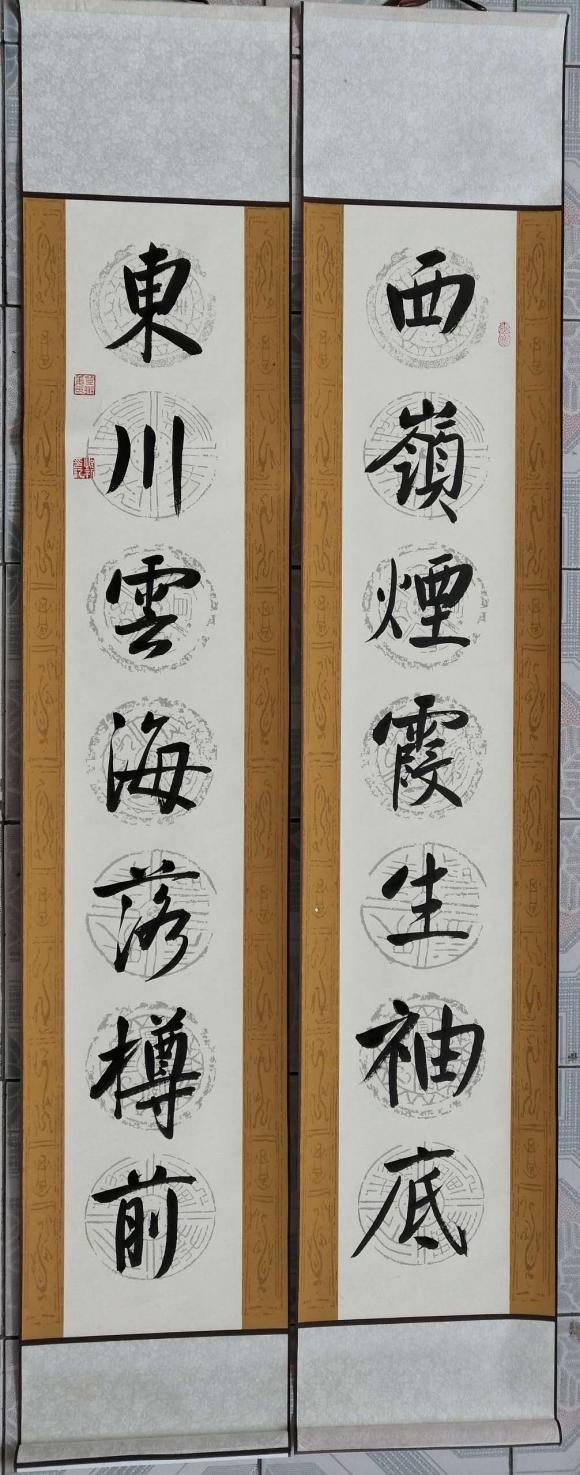 西嶺煙霞生袖底
東川雲海落樽前